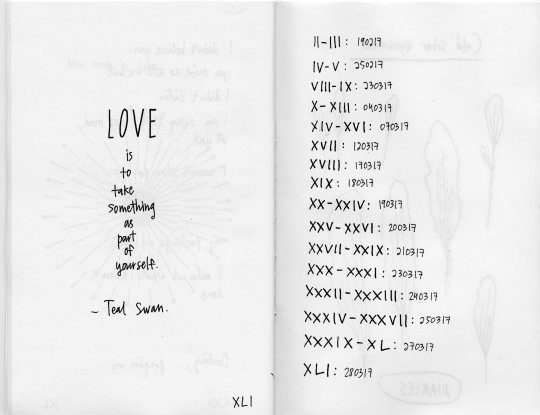 LOVE
is
to
take
something
as
part
of
yourself.
- Teal Swan.
XLI
II-III: 190217
IV-V: 250217
VIII-IX: 230317
X-XIII: 040317
XIV-XVI: 070317
XVII: 120317
XVIII: 170317
XIX: 180317
XX-XXIV: 190317
XXV-XXVI: 200317
XXVII-XXIX: 210317
XXX-XXXI: 230317
XXXII-XXXIII: 240317
XXXIV-XXXVII: 250317
XXXIX-XL: 270317
XLI: 280317